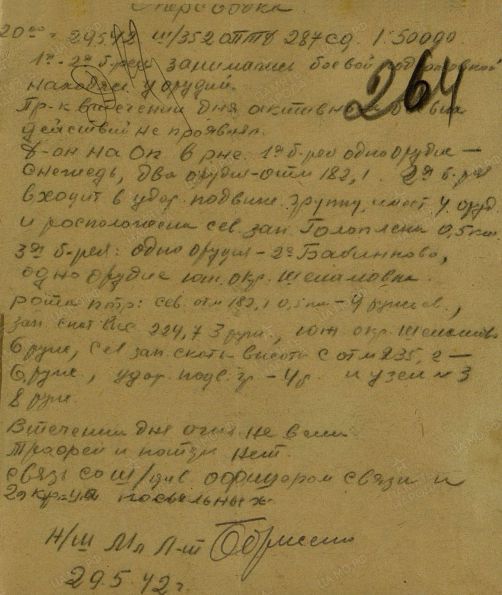 Оперсводка.
20⁰⁰ 29.5.42 ш/352 ОПТД 287 СД. 1:50000
1ая-2ая б-реи занимались боевой подготовкой
находясь у орудий.
264
Пр-к в течении дня активных боевых
действий не проявлял.
Д-он на ОП в р-не: 1ая б-рея одно орудие –
Снежедь, два орудия – отм 182,1. 2ая б-рея
входит в удар. подвиж. группу, имеет 4 оруд
и расположена сев. зап. 0,5 км.
3ая б-рея: одно орудие – 2ое Бабинково,
одно орудие юж. окр. Шеламовка.
рота птр: сев. отм 182,1 0,5 км – 4 ружья.,
зап. скат выс 224,7 3 руж., юж. окр.
6 руж, сев зап. скаты высоты с отм 235,2 –
6 руж., удар. подв. гр – 4 р. и узел № 3
8 руж.
В течении дня огня не вели
Трофей и потерь нет.
связь со ш/див. офицером связи и
посыльных
Н/ш Мл л-т
29.5.42 г.